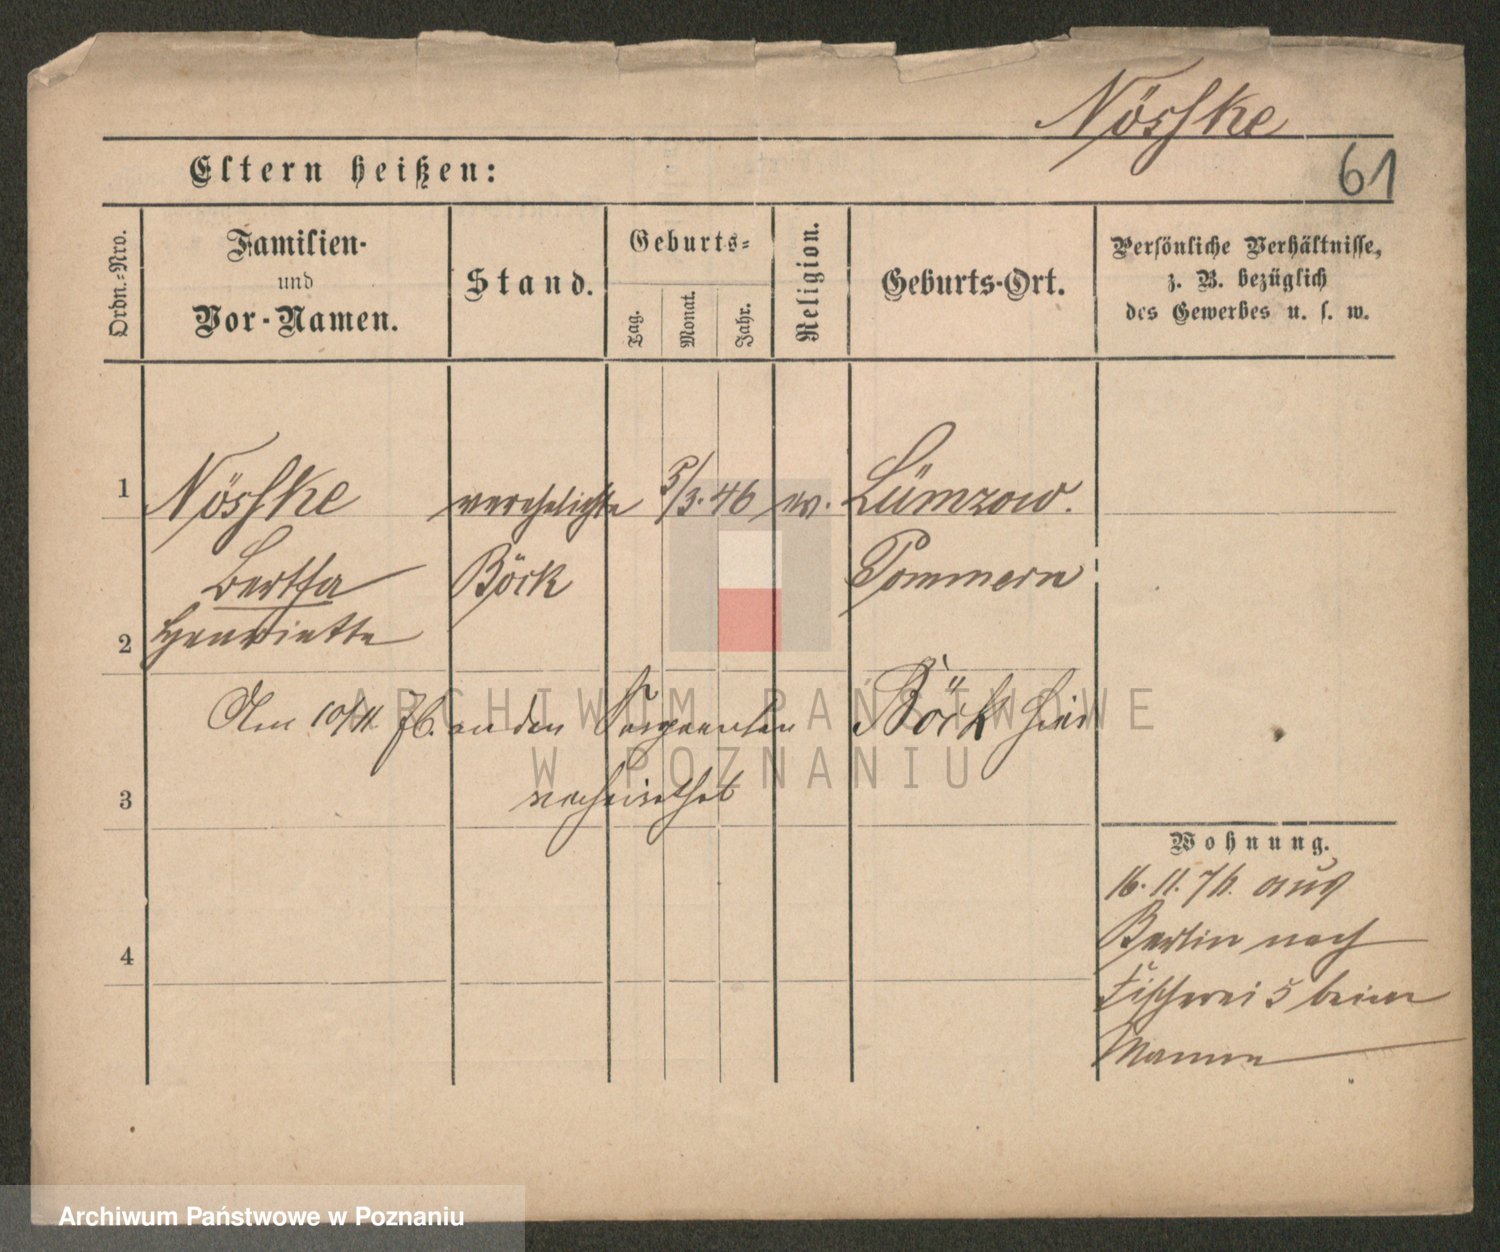 Nöshke
Eltern heißen:
61
Ordn.-Nro.
Familien-
und
Vor-Namen.
Stand.
Geburts-
Tag.
Monat.
Jahr.
Religion.
Geburts-Ort.
Persönliche Verhältnisse,
z. B. bezüglich
des Gewerbes u. s. w.
1 Nöshke verehelichte 5/3. 46 ev. Lümzow.
Bertha Böck Pommern
2 Henriette
Am 10/11. 76. an den Sergeanten Böck hier
verheirathet
3
Wohnung.
16. 11. 76. aus
Berlin nach
4
Fischerei 5 beim
Manne
ARCHIWUM PAŃSTWOWE
W POZNANIU
Archiwum Państwowe w Poznaniu